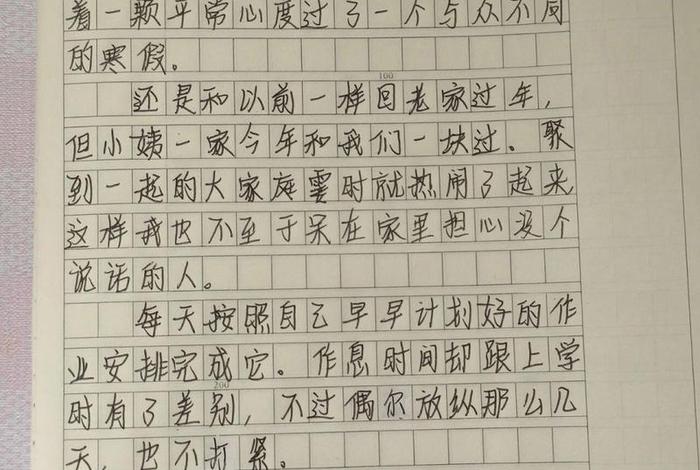 着一颗平常心度过了一个与众不同
的寒假。
100
还是和以前一样回老家过年，
但小姨一家今年和我们一块过。聚
到一起的大家庭霎时就热闹了起来
这样我也不至于呆在家里担心没个
说话的人。
每天按照自己早早计划好的作
业安排完成它。作息时间却跟上学
200
时有了差别，不过偶尔放纵那么几
天，也不打紧。